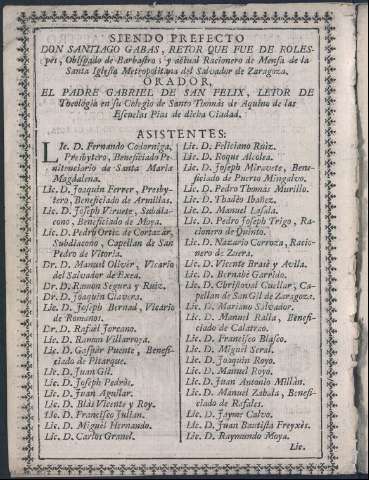 SIENDO PREFECTO
DON SANTIAGO GABAS, RETOR QUE FUE DE ROLES-
pès, Obispado de Barbastro; y actual Racionero de Mensa de la
Santa Iglesia Metropolitana del Salvador de Zaragoza.
ORADOR,
EL PADRE GABRIEL DE SAN FELIX, LETOR DE
Theologia en su Colegio de Santo Thomàs de Aquino de las
Escuelas Pias de dicha Ciudad.
ASISTENTES:
LIc. D. Fernando Codorniga,
Presbytero, Beneficiado Pe-
nitenciario de Santa Maria
Magdalena.
Lic. D. Joaquin Ferrer, Presby-
tero, Beneficiado de Armillas.
Lic. D. Joseph Viruete, Subdia-
cono, Beneficiado de Moya.
Lic. D. Pedro Ortiz de Cortazar,
Subdiacono, Capellan de San
Pedro de Vitoria.
Dr. D. Manuel Olivèr, Vicario
del Salvador de Exea.
Dr. D. Ramon Segura y Ruiz.
Dr. D. Joaquin Clavera.
Lic. D. Joseph Bernad, Vicario
de Romanos.
Dr. D. Rafaèl Joreano.
Lic. D. Ramon Villarroya.
Lic. D. Gaspàr Puente, Benefi-
ciado de Pitarque.
Lic. D. Juan Gil.
Lic. D. Joseph Pedròs.
Lic. D. Juan Aguilar.
Lic. D. Blàs Vicente y Roy.
Lic. D. Francisco Julian.
Lic. D. Miguèl Hernando.
Lic. D. Carlos Granel.
Lic. D. Feliciano Ruiz.
Lic. D. Roque Alcolea.
Lic. D. Joseph Miravete, Bene-
ficiado de Puerto Mingalvo.
Lic. D. Pedro Thomàs Murillo.
Lic. D. Thadèo Ibañez.
Lic. D. Manuel Lasala.
Lic. D. Pedro Joseph Trigo, Ra-
cionero de Quinto.
Lic. D. Nazario Corroza, Racio-
nero de Zuera.
Lic. D. Vicente Braiè y Avila.
Lic. D. Bernabè Garrido.
Lic. D. Christoval Cuellar, Ca-
pillan de San Gil de Zaragoza.
Lic. D. Mariano Salvador.
Lic. D. Manuel Ralla, Benefi-
ciado de Calatrao.
Lic. D. Francisco Blasco.
Lic. D. Miguèl Seral.
Lic. D. Joaquin Royo.
Lic. D. Manuel Royo.
Lic. D. Juan Antonio Millàn.
Lic. D. Manuel Zabala, Benefi-
ciado de Rafales.
Lic. D. Jayme Calvo.
Lic. D. Juan Bautista Freyxès.
Lic. D. Raymundo Moya.
Lic.